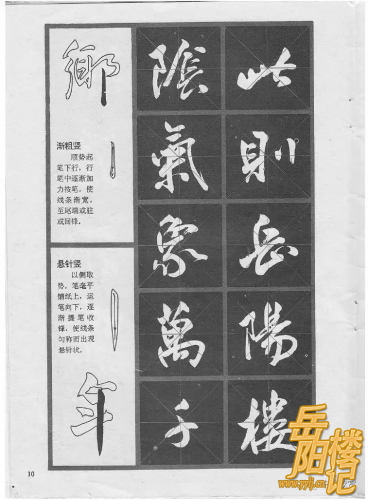 此則岳陽樓
陰氣象萬千
鄉
渐粗竖
顺势起
笔下行，行
笔中逐渐加
力按笔，使
线条渐宽，
至尾端或驻
或回锋。
悬针竖
以侧取
势，笔毫平
铺纸上，运
笔向下，逐
渐提笔收
锋，使线条
匀称而出现
悬针状。
年
10
岳阳楼记
www.yylj.cc